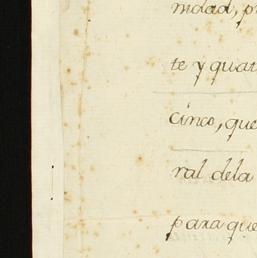 nidad, p
te y quat
cinco, que
ral dela
para que